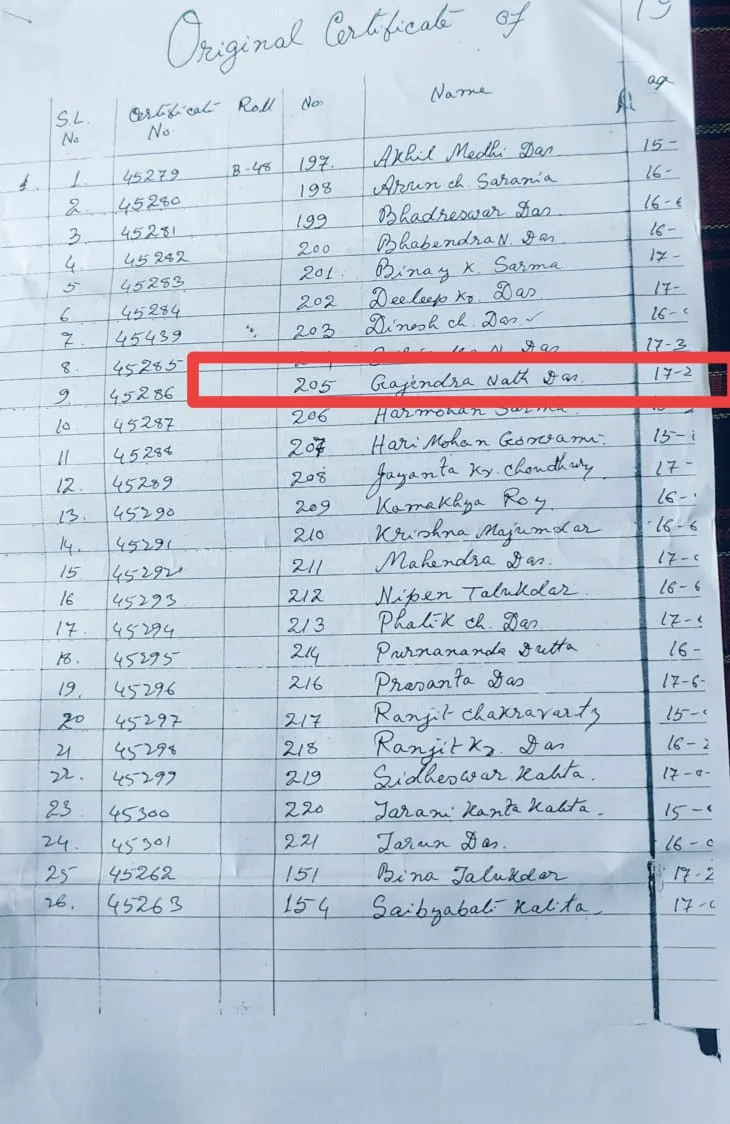 Original Certificate of 19
S.L. No Certificate No. Roll No. Name age
1. 45279 B-48 197. Akhil Medhi Das 15-
2. 45280 198 Arun ch. Sarania 16-
3. 45281 199 Bhadreswar Das 16-6
4 45282 200 Bhabendra N. Das 16-
5 45283 201. Binay K. Sarma 17-
6 45284 202 Deeleep Kr. Das 17-
7. 45439 203 Dinesh ch. Das. ✓ 16-
8. 45285 N. Das 17-3
9. 45286 205 Gajendra Nath Das. 17-2
10. 45287 206 Harmohan Sarma.
11 45288 207 Hari Mohan Goswami. 15-
12. 45289 208 Jayanta Kr. choudhury. 17-
13. 45290 209 Kamakhya Roy. 16-
14. 45291 210 Krishna Majumdar 16-6
15 45292 211 Mahendra Das. 17-
16 45293 212 Nipen Talukdar. 16-6
17. 45294 213 Phatik ch. Das 17-
18. 45295 214 Purnananda Dutta 16-
19. 45296 216 Prasanta Das 17-6-
20 45297 217 Ranjit chakravarty 15-
21 45298 218 Ranjit Kr. Das 16-2
22. 45299 219 Sidheswar Kalita. 17-0-
23 45300 220 Tarani Kanta Kalita. 15-
24. 45301 221 Tarun Das. 16-0
25 45262 151 Bina Talukdar 17-2
26. 45263 154 Saibyabati Kalita 17-